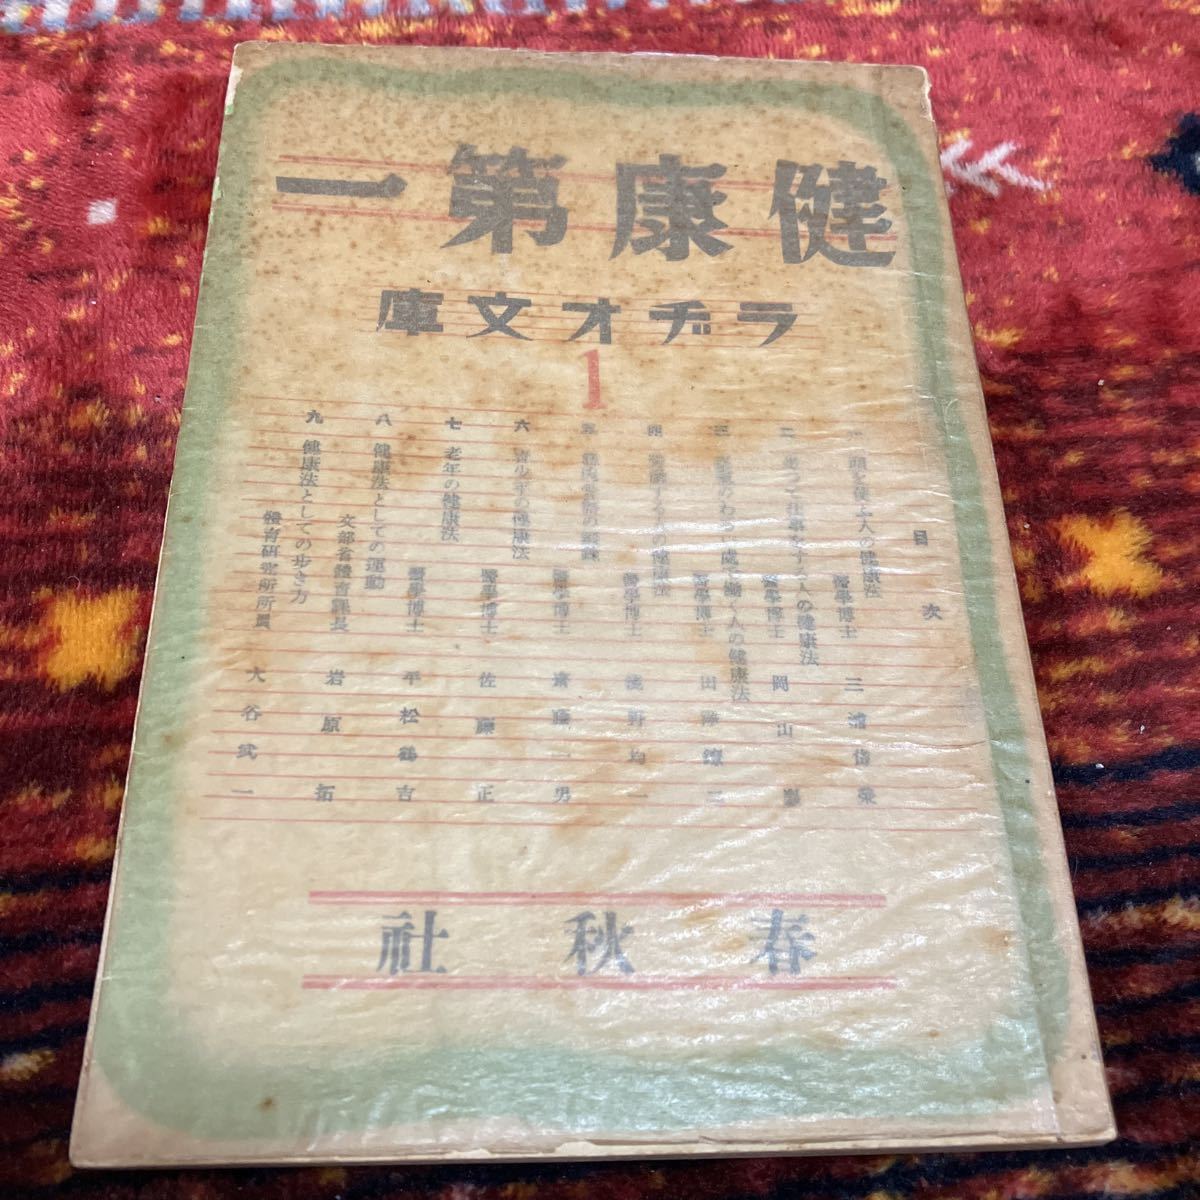 健康第一
ラヂオ文庫
1
目次
一 頭を使ふ人の健康法
醫學博士 三浦謹
二 坐つて仕事をする人の健康法
醫學博士 岡山
三 のわるい處で働く人の健康法
醫學博士 田
四 する人の健康法
醫學博士 野均一
五
醫學博士 齋藤一男
六 青少年の健康法
醫學博士 佐藤正
七 老年の健康法
醫學博士 平松鶴吉
八 健康法としての運動
文部省體育課長 岩原拓
九 健康法としての歩き方
體育研究所所員 大谷武一
春秋社